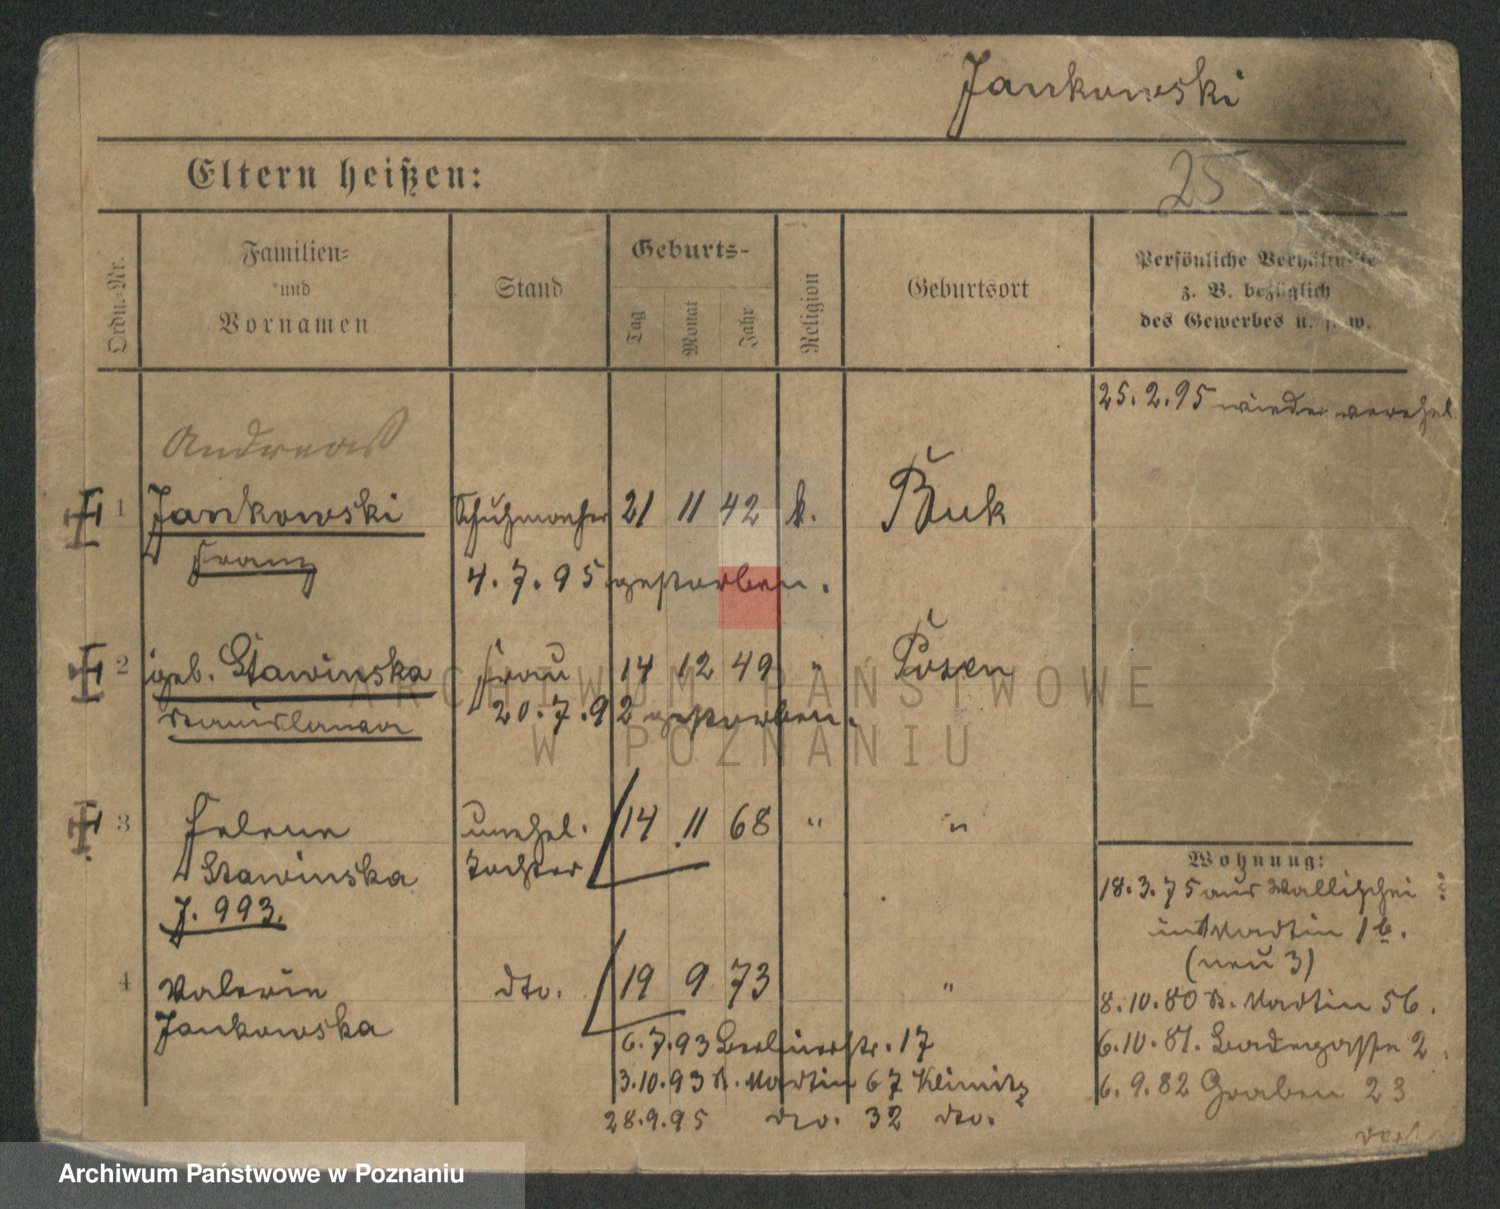 Jankowski
Eltern heißen:
25
Ordn.-Nr.
Familien-
und
Vornamen
Stand
Geburts-
Tag
Monat
Jahr
Religion
Geburtsort
Persönliche Verhältnisse
z. B. bezüglich
des Gewerbes u. s. w.
25.2.95 wieder verehel
Andreas
1 Jankowski Schuhmacher 21 11 42 k. Buk
Franz 4.7.95 gestorben.
2 geb. Stawinska Frau 14 12 49 " Posen
Stanislawa 20.7.92 gestorben.
3 Helene unehel. 14 11 68 " "
Stawinska Tochter
J. 993.
4 Valerie dto. 19 9 73 "
Jankowska
6.7.93 Berlinerstr. 17
3.10.93 St. Martin 67 Klimitz
28.9.95 dto. 32 dto.
Wohnung:
18.3.75 aus Wallischei
in Martin 16.
(neu 3)
8.10.80 St. Martin 56.
6.10.81. Badegasse 2.
6.9.82 Graben 23
dort
ARCHIWUM PAŃSTWOWE
W POZNANIU
Archiwum Państwowe w Poznaniu